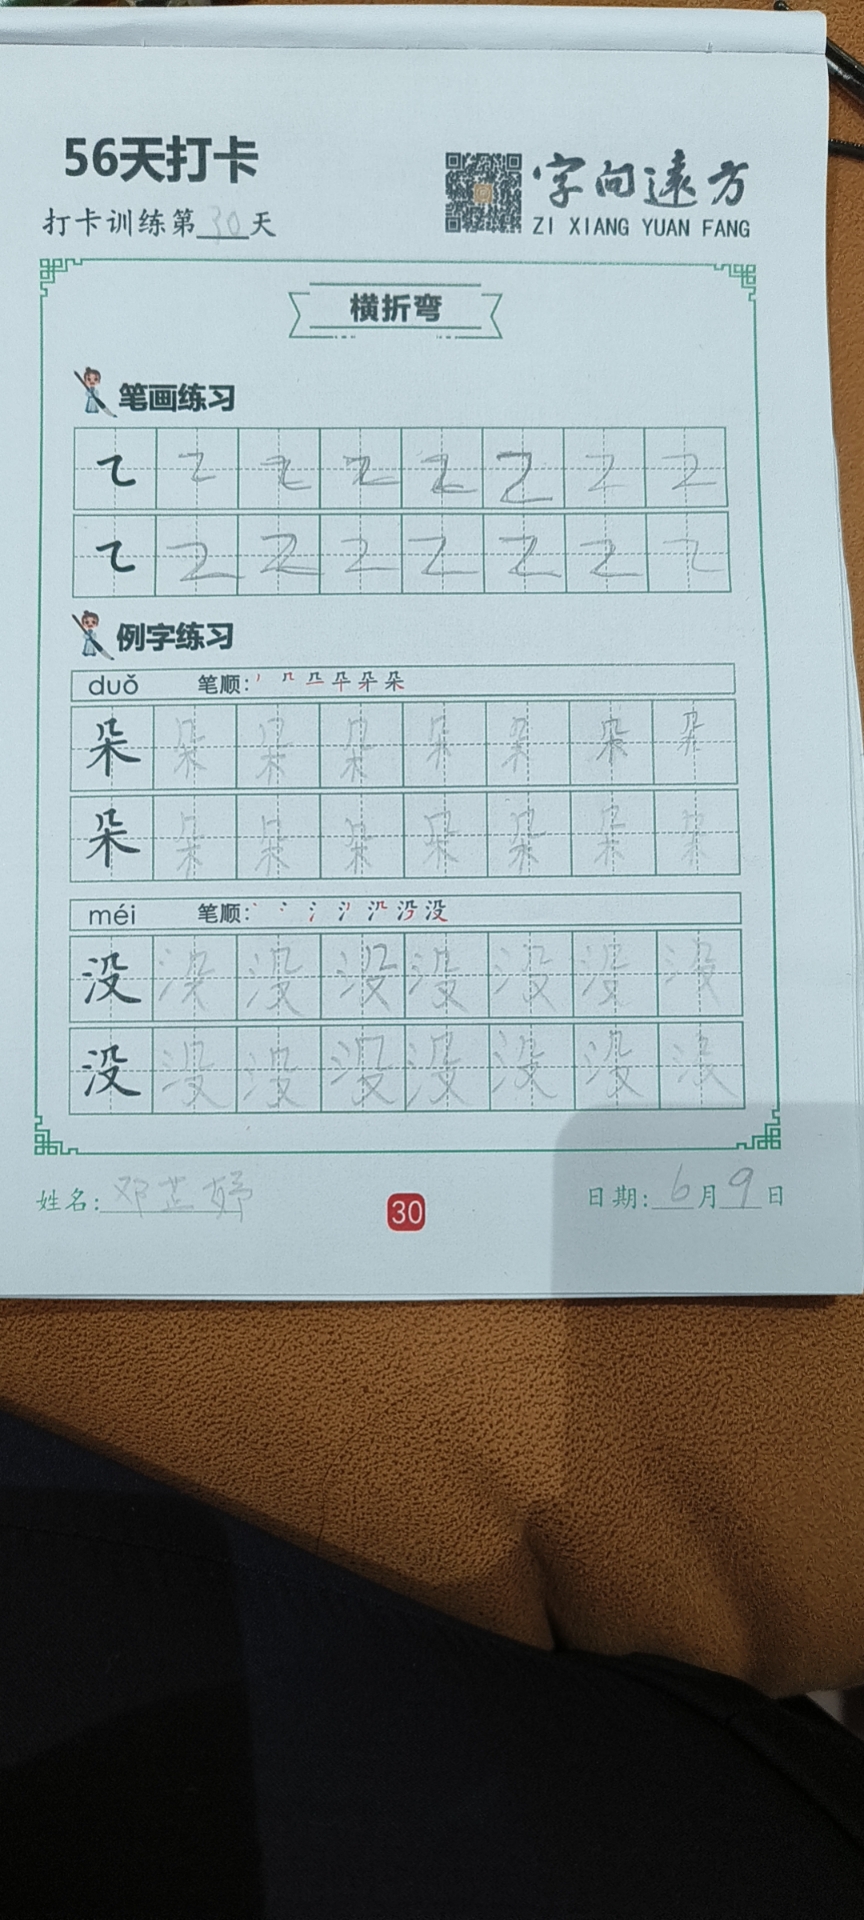 56天打卡
打卡训练第30天
字向遠方
ZI XIANG YUAN FANG
横折弯
笔画练习
㇍ ㇍ ㇍ ㇍ ㇍ ㇍ ㇍ ㇍
㇍ ㇍ ㇍ ㇍ ㇍ ㇍ ㇍ ㇍
例字练习
duǒ 笔顺:
朵 朵 朵 朵 朵 朵 朵 朵
朵 朵 朵 朵 朵 朵 朵 朵
méi 笔顺:
没 没 没 没 没 没 没 没
没 没 没 没 没 没 没 没
姓名:邓芷妤
30
日期:6月9日